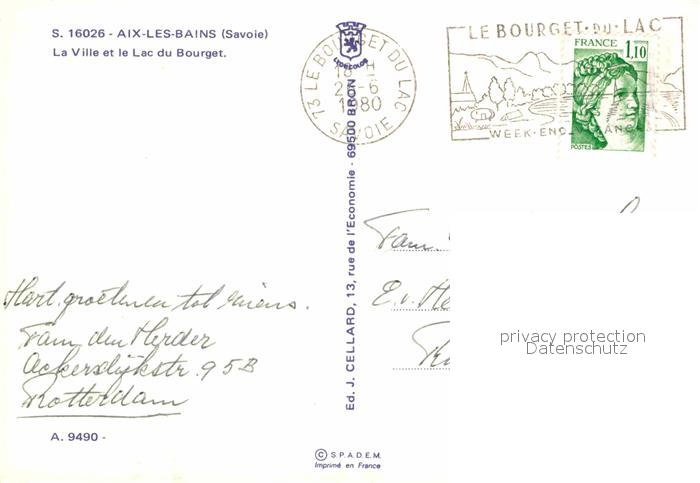 S. 16026 - AIX-LES-BAINS (Savoie)
La Ville et le Lac du Bourget.
LYONCOLOR
73 LE BOURGET DU LAC
18 H
1980
SAVOIE
LE BOURGET·DU·LAC
FRANCE
1,10
POSTES
Ed. J. CELLARD, 13, rue de l'Economie - 69500 BRON
Fam.
E.v.
Hart. groeten en tot ziens.
Fam den Herder
Ackersdijkstr. 95B
Rotterdam
privacy protection
Datenschutz
A. 9490 -
© S.P.A.D.E.M.
Imprimé en France